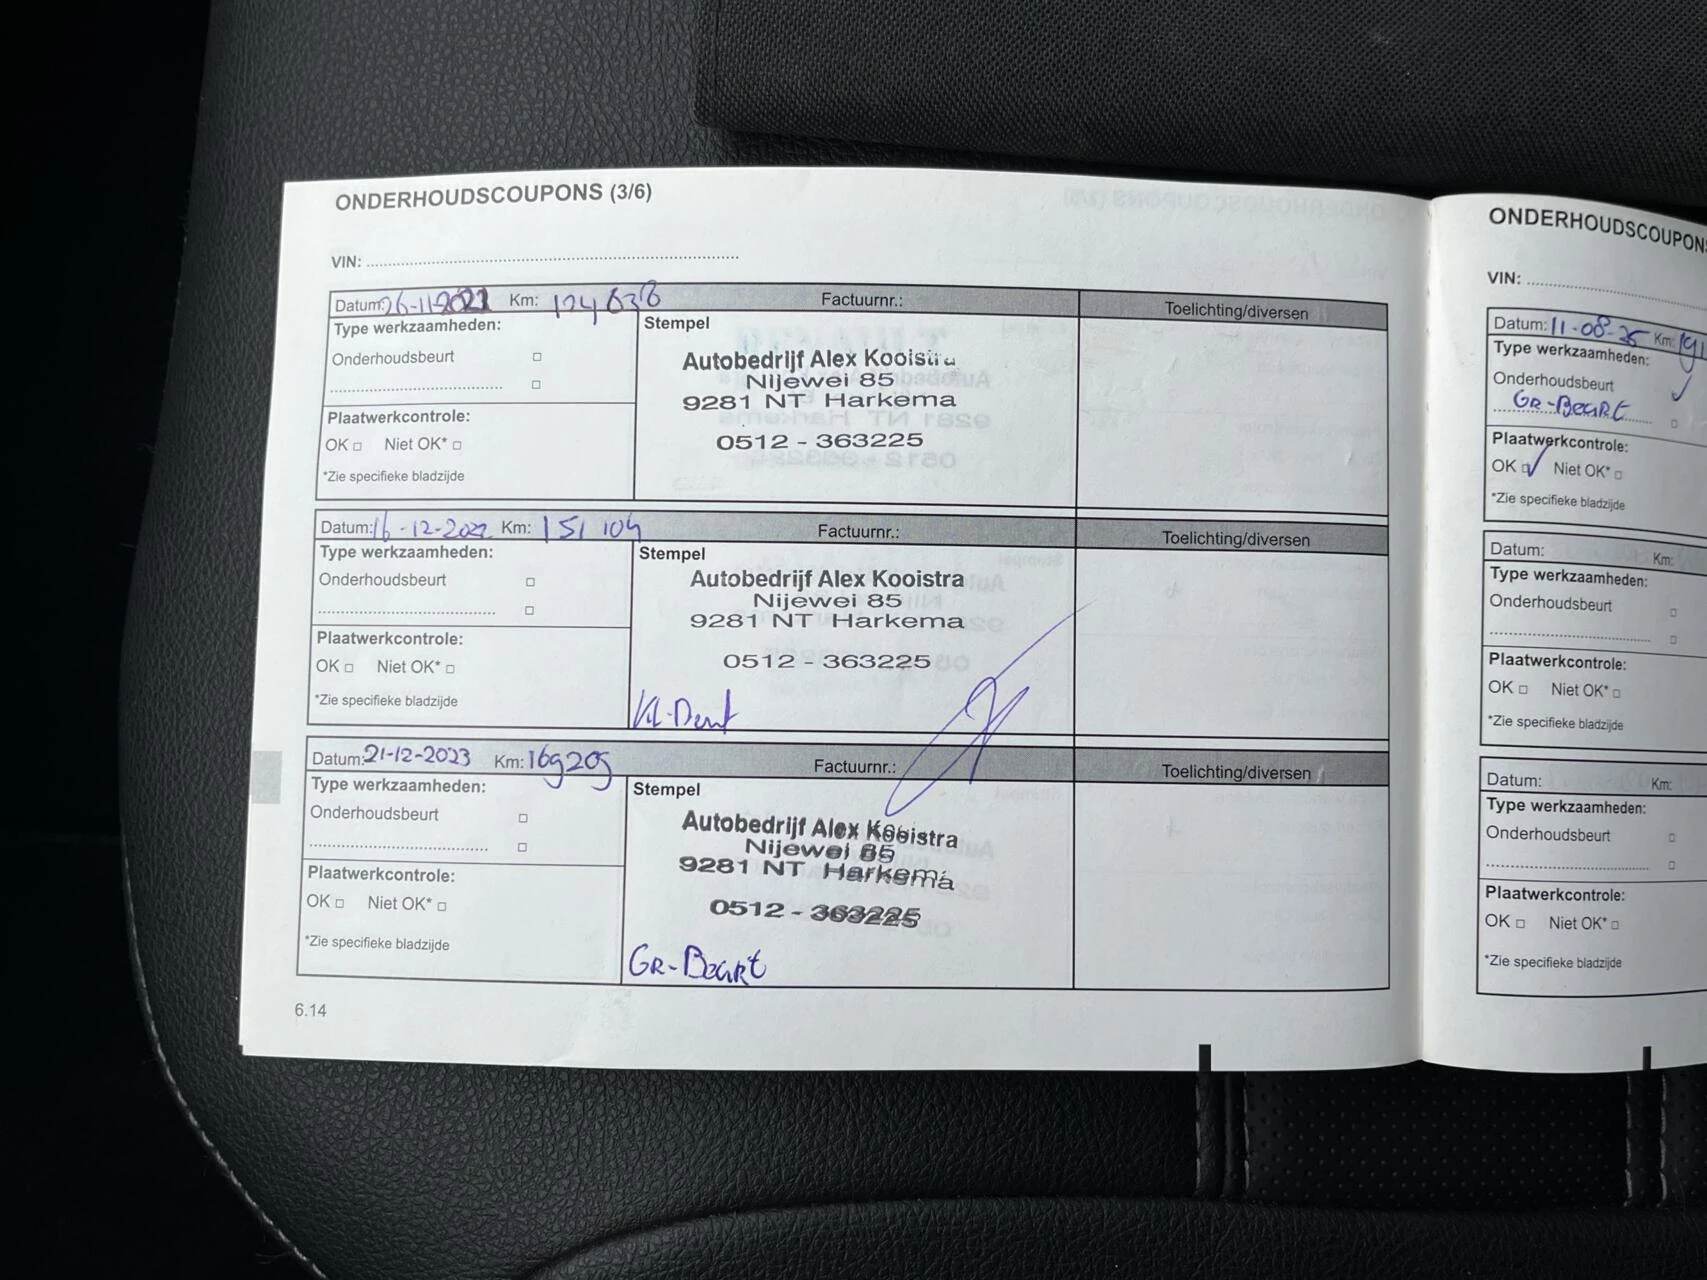 ONDERHOUDSCOUPONS (3/6)
VIN:
Datum: 26-11-2021 Km: 124638 Factuurnr.: Toelichting/diversen
Type werkzaamheden: Stempel
Onderhoudsbeurt
Autobedrijf Alex Kooistra
Nijewei 85
9281 NT Harkema
0512 - 363225
Plaatwerkcontrole:
OK Niet OK*
*Zie specifieke bladzijde
Datum: 16-12-2022 Km: 151 104 Factuurnr.: Toelichting/diversen
Type werkzaamheden: Stempel
Onderhoudsbeurt
Autobedrijf Alex Kooistra
Nijewei 85
9281 NT Harkema
0512 - 363225
Plaatwerkcontrole:
OK Niet OK*
*Zie specifieke bladzijde
Datum: 21-12-2023 Km: 169205 Factuurnr.: Toelichting/diversen
Type werkzaamheden: Stempel
Onderhoudsbeurt
Autobedrijf Alex Kooistra
Nijewei 85
9281 NT Harkema
0512 - 363225
Plaatwerkcontrole:
OK Niet OK*
*Zie specifieke bladzijde
GR-Beurt
6.14
ONDERHOUDSCOUPONS
VIN:
Datum: 11-08-25 Km: 191
Type werkzaamheden:
Onderhoudsbeurt
GR-Beurt
Plaatwerkcontrole:
OK Niet OK*
*Zie specifieke bladzijde
Datum: Km:
Type werkzaamheden:
Onderhoudsbeurt
Plaatwerkcontrole:
OK Niet OK*
*Zie specifieke bladzijde
Datum: Km:
Type werkzaamheden:
Onderhoudsbeurt
Plaatwerkcontrole:
OK Niet OK*
*Zie specifieke bladzijde